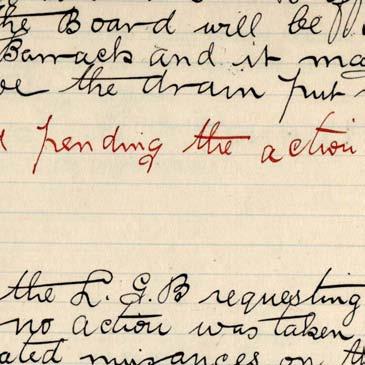 the Board will be
Barrack and it may
the drain put
pending the action
the L. G. B requesting
no action was taken
ated nuisances on